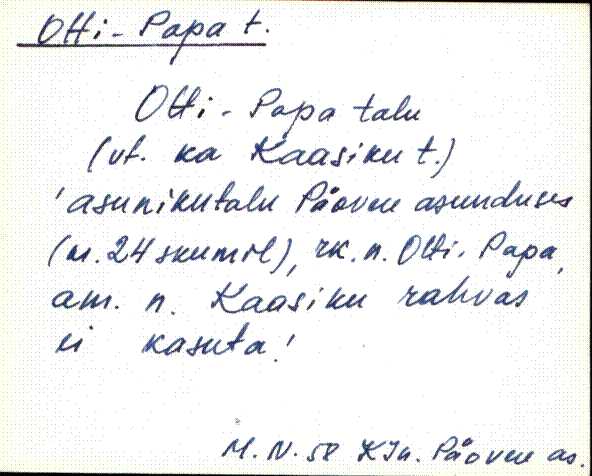 Otti-Papa t.
Otti-Papa talu
(vt. ka Kaasiku t.)
'asunikutalu Päovere asunduses
(nr. 24 skeemil), rk. n. Otti-Papa,
am. n. Kaasiku rahvas
ei kasuta!
M. N. 58 KJn. Päovere as.